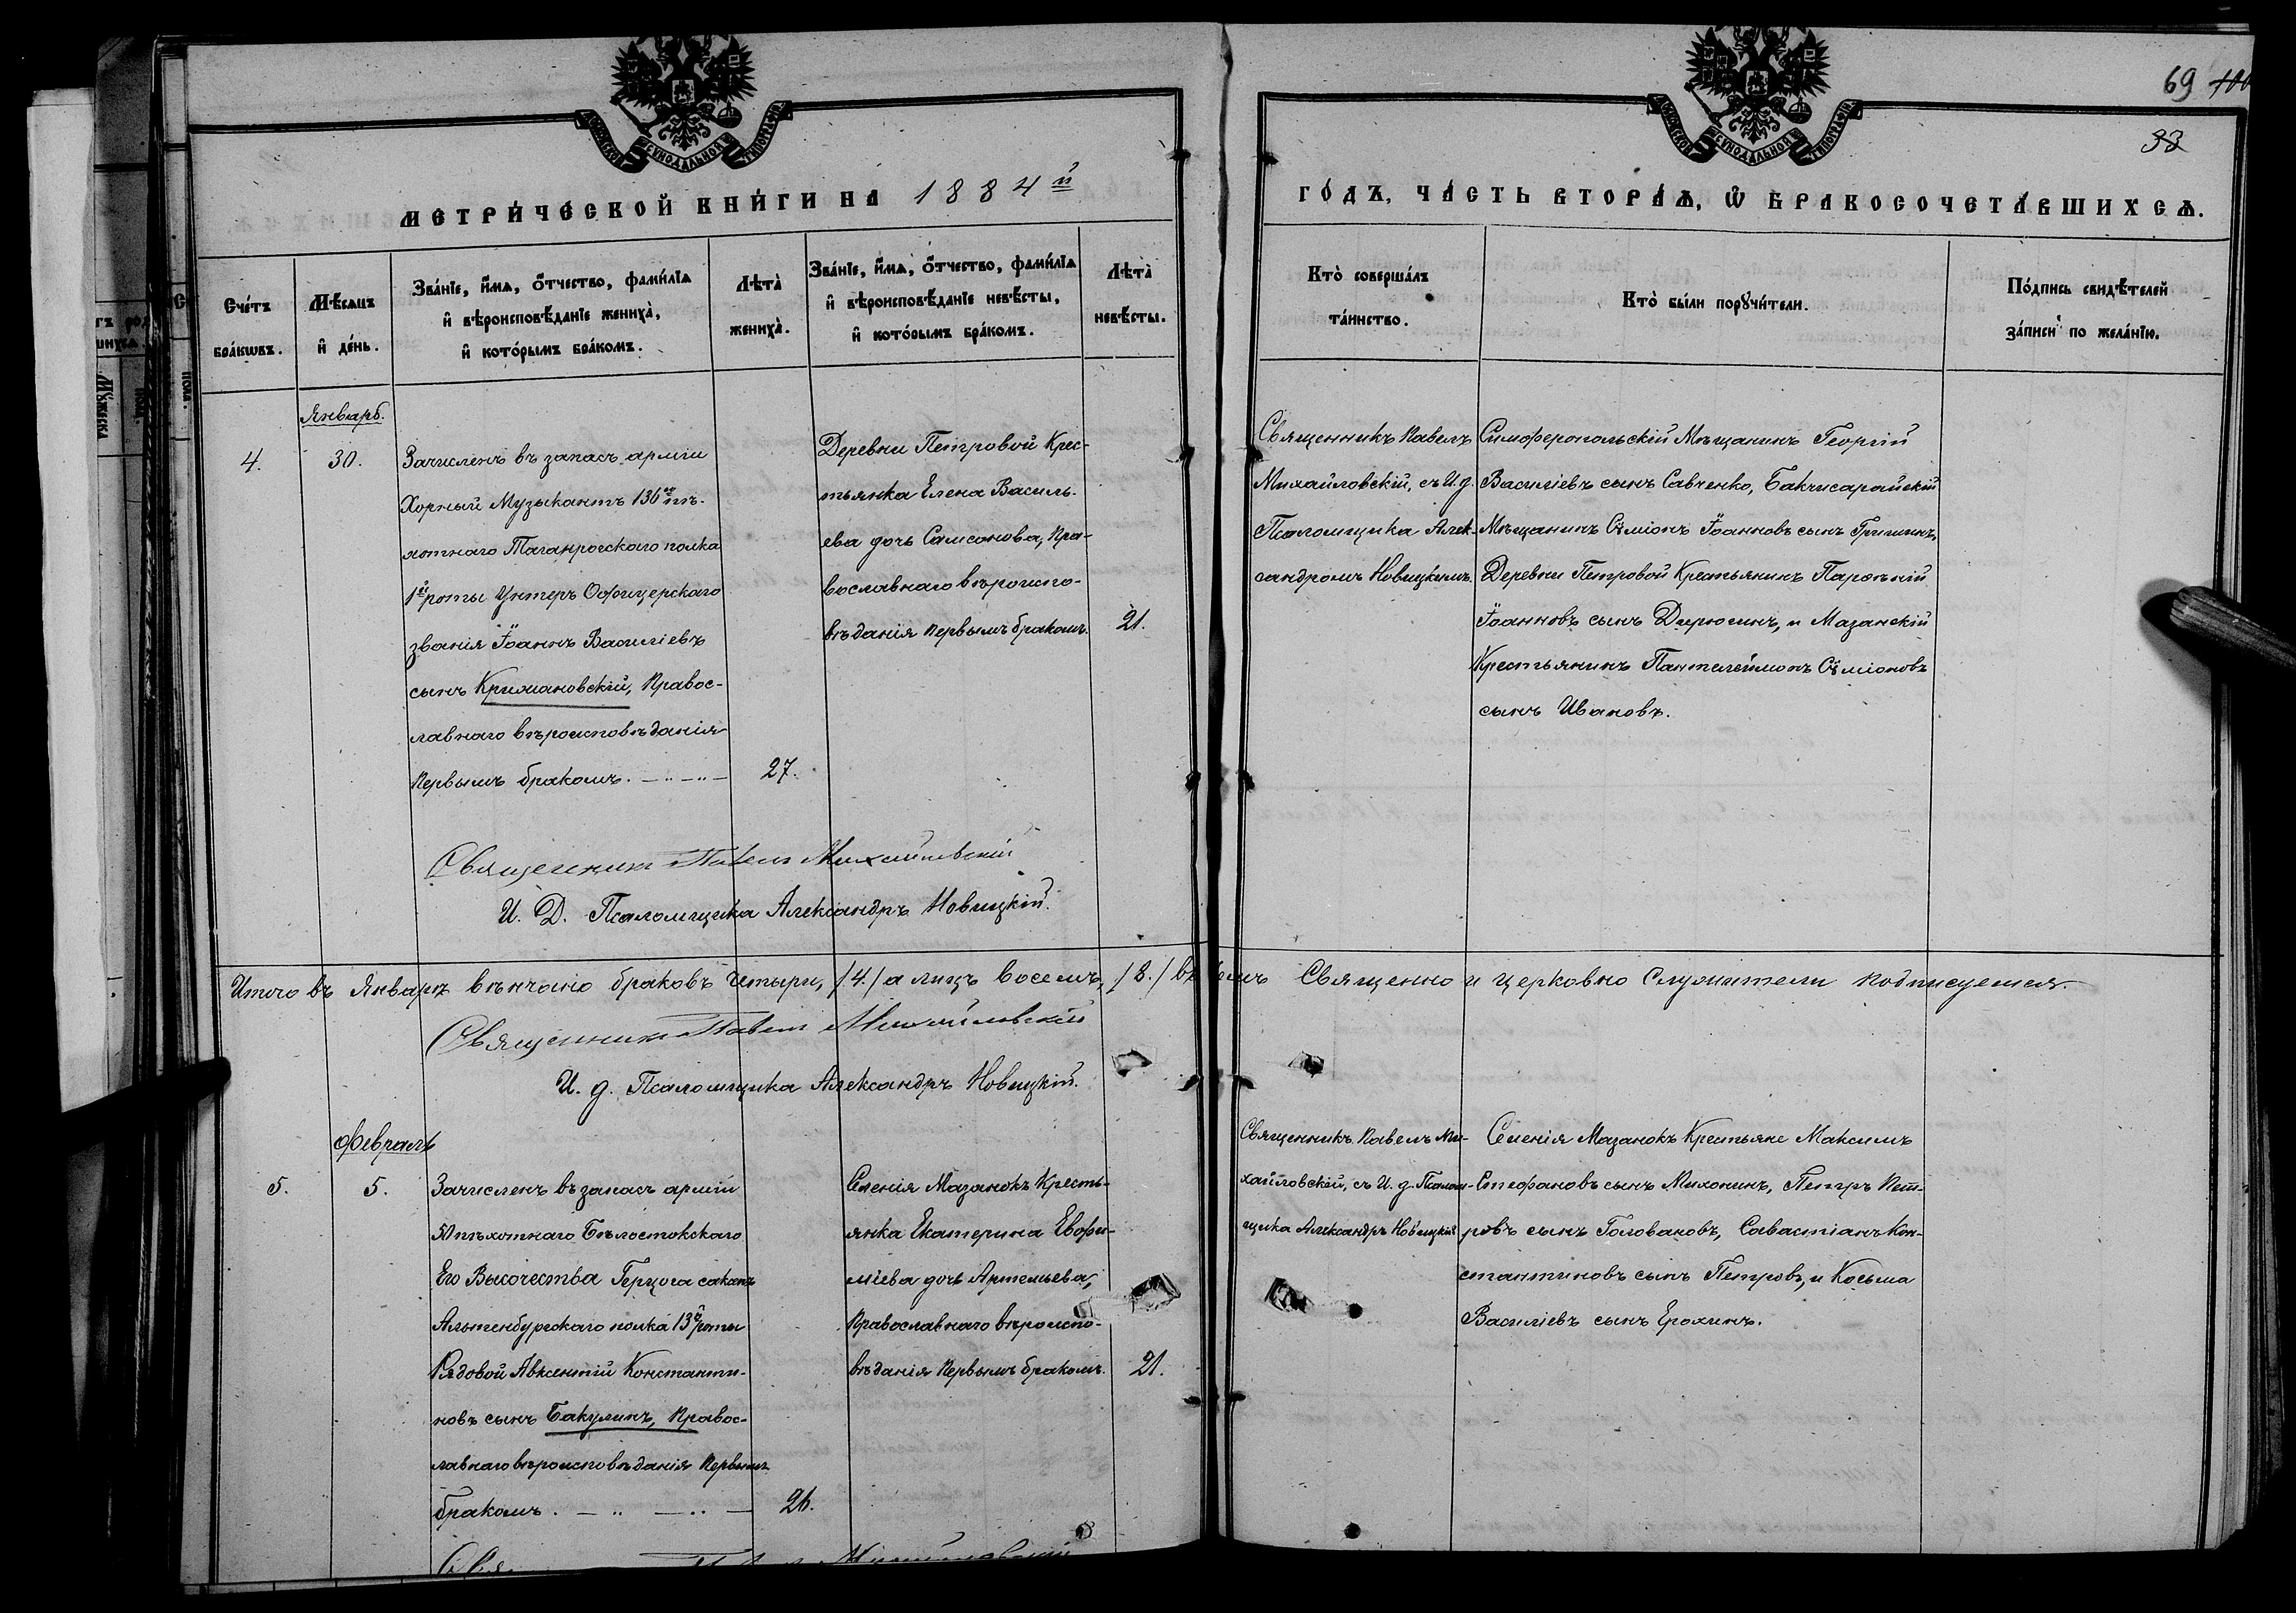 69
33
МЕТРИ́ЧЕСКОЙ КНИ́ГИ НА 1884й
ГО́ДЪ, ЧА́СТЬ ВТОРА́Ѧ, Ѡ҆ БРАКОСОЧЕТА́ВШИХСѦ.
Сче́тъ бра́кѡвъ.
Мѣ́сѧцъ и҆ де́нь.
Зва́нїе, и҆́мѧ, о҆́тчество, фами́лїѧ
и҆ вѣроисповѣ́данїе жениха̀,
и҆ кото́рымъ бра́комъ.
Лѣта̀
жениха̀.
Зва́нїе, и҆́мѧ, о҆́тчество, фами́лїѧ
и҆ вѣроисповѣ́данїе невѣ́сты,
и҆ кото́рымъ бра́комъ.
Лѣта̀
невѣ́сты.
Кто̀ соверша́лъ
та́инство.
Кто̀ бы́ли порꙋчи́тели.
По́дпись свидѣ́телей
за́писи по жела́нїю.
Январь.
4.
30.
Зачисленъ въ запасъ арміи
Хорный Музыкантъ 136го пѣ-
хотнаго Таганрогскаго полка
1й роты Унтеръ Офицерскаго
званія Іоаннъ Василіевъ
сынъ Кримановскій, Правос-
лавнаго вѣроисповѣданія
Первымъ бракомъ.
27.
Деревни Петровой Крес-
тьянка Елена Василь-
ева дочь Самсонова, Пра-
вославнаго вѣроиспо-
вѣданія Первымъ бракомъ.
21.
Священникъ Павелъ
Михайловскій, съ И. д.
Псаломщика Алек-
сандромъ Новицкимъ.
Симферопольскій Мѣщанинъ Георгій
Василіевъ сынъ Савченко, Бакчисарайскій
Мѣщанинъ Сѵміонъ Іоанновъ сынъ Гришинъ,
Деревни Петровой Крестьянинъ Парѳеній
Іоанновъ сынъ Дирюгинъ, и Мазанскій
Крестьянинъ Пантелеймонъ Сѵміоновъ
сынъ Ивановъ.
Священникъ Павелъ Михайловскій
И. Д. Псаломщика Александръ Новицкій.
Итого въ Январѣ вѣнчано браковъ четыри, /4./ а лицъ восемъ, /8./ въ чемъ Священно и церковно Служители подписуемся.
Священникъ Павелъ Михайловскій
И. д. Псаломщика Александръ Новицкій.
Февраль
5.
5.
Зачисленъ въ запасъ арміи
50 пѣхотнаго Бѣлостокскаго
Его Высочества Герцога саксенъ
Альтенбургскаго полка 13й роты
Рядовой Авксентій Константи-
новъ сынъ Бакулинъ, Правос-
лавнаго вѣроисповѣданія Первымъ
бракомъ.
26.
Селенія Мазанокъ Кресть-
янка Екатерина Евфи-
міева дочь Артемьева,
Православнаго вѣроиспо-
вѣданія Первымъ бракомъ.
21.
Священникъ Павелъ Ми-
хайловскій, съ И. д. Псалом-
щика Александръ Новицкій
Селенія Мазанокъ Крестьяне Максимъ
Стефановъ сынъ Михонинъ, Петръ Пет-
ровъ сынъ Головановъ, Савастіанъ Кон-
стантиновъ сынъ Петровъ, и Косьма
Василіевъ сынъ Ерохинъ.